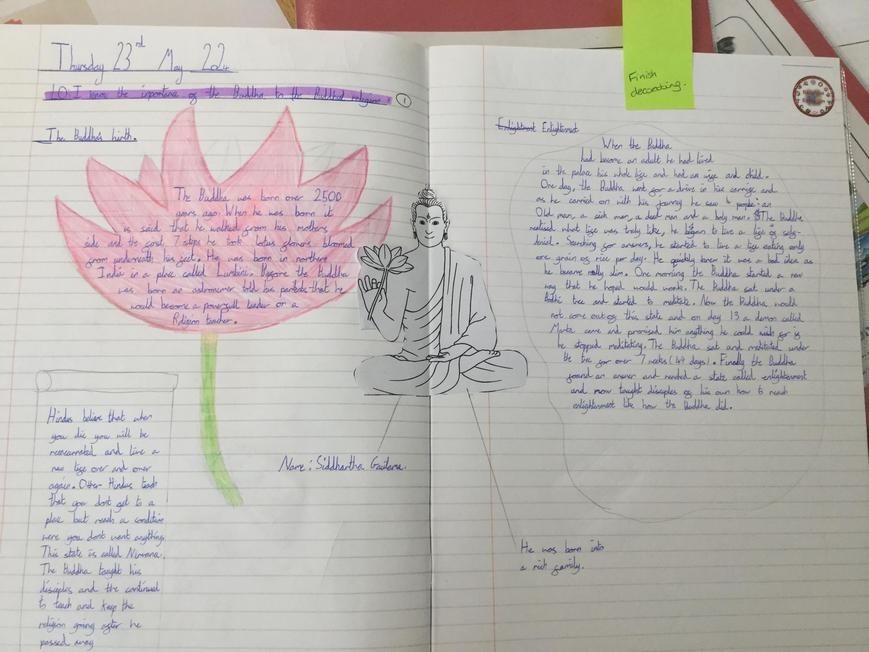 Thursday 23rd May 22
LO: I know the importance of the Buddha to the Buddhist religion. 1
The Buddha's birth.
The Buddha was born over 2500
years ago. When he was born it
is said that he walked from his mothers
side and the first 7 steps he took lotus flowers bloomed
from underneath his feet. He was born in northern
India in a place called Lumbini. Before the Buddha
was born an astronomer told his parents that he
would become a powerfull leader or a
Religion teacher.
Hindus believe that when
you die you will be
reincarnated and live a
new life over and over
again. Other Hindus teach
that you dont get to a
place but reach a condition
were you dont want anything.
This state is called Nirvana.
The Buddha taught his
disciples and the continued
to teach and keep the
religion going after he
passed away
Name: Siddhartha Gautama.
Finish
decorating.
Enlightment Enlightment
When the Buddha
had become an adult he had lived
in the palace his whole life and had an wife and child.
One day, the Buddha went for a drive in his carrige and
as he carried on with his journey he saw 4 people: an
Old man, a sick man, a dead man and a holy man. The Buddha
realised what life was truly like, he began to live a life of self-
denial. Searching for answers, he started to live a life eating only
one grain of rice per day. He quickly knew it was a bad idea as
he became really slim. One morning the Buddha started a new
way that he hoped would work. The Buddha sat under a
Bodhi tree and started to meditate. Now the Buddha would
not come out of this state and on day 13 a demon called
Mara came and promised him anything he could wish for if
he stopped meditating. The Buddha sat and meditated under
the tree for over 7 weeks (49 days). Finally the Buddha
found an answer and reached a state called enlightenment
and now taught disciples of his own how to reach
enlightenment like how the Buddha did.
He was born into
a rich family.